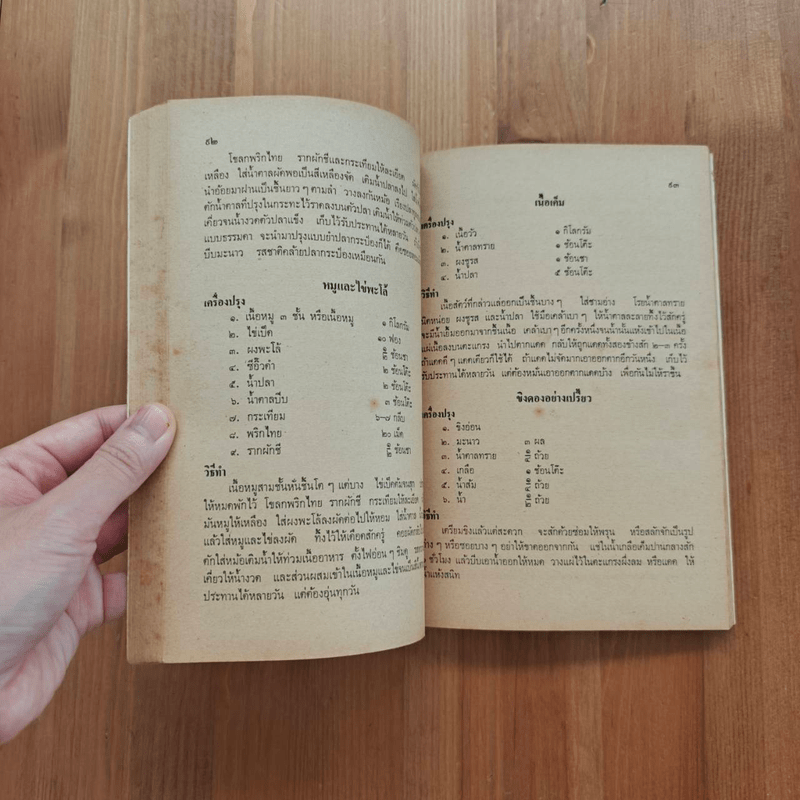 ๙๒
โขลกพริกไทย รากผักชีและกระเทียมให้ละเอียด
เหลือง ใส่น้ำตาลผัดพอเป็นสีเหลืองจัด เติมน้ำปลาลงไป
นำอ้อยมาผ่านเป็นชิ้นยาว ๆ ตามลำ วางลงก้นหม้อ
ตักน้ำตาลที่ปรุงในกระทะไว้ราดลงบนตัวปลา เติมน้ำให้ท่วม
เคี่ยวจนน้ำงวดตัวปลาแข็ง เก็บไว้รับประทานได้หลายวัน
แบบธรรมดา จะนำมาปรุงแบบยำปลากระป๋องก็ได้ คือซอย
บีบมะนาว รสชาติคล้ายปลากระป๋องเหมือนกัน
หมูและไข่พะโล้
เครื่องปรุง
๑. เนื้อหมู ๓ ชั้น หรือเนื้อหมู ๑ กิโลกรัม
๒. ไข่เป็ด ๑๐ ฟอง
๓. ผงพะโล้ ช้อนชา
๔. ซีอิ๊วดำ ๒ ช้อนโต๊ะ
๕. น้ำปลา ๒ ช้อนโต๊ะ
๖. น้ำตาลปีบ ๓ ช้อนโต๊ะ
๗. กระเทียม ๖-๗ กลีบ
๘. พริกไทย ๒๐ เม็ด
๙. รากผักชี ช้อนชา
วิธีทำ
เนื้อหมูสามชั้นหั่นชิ้นโต ๆ แต่บาง ไข่เป็ดต้มจนสุก
ให้หมดพักไว้ โขลกพริกไทย รากผักชี กระเทียมให้ละเอียด
มันหมูให้เหลือง ใส่ผงพะโล้ลงผัดต่อไปให้หอม ใส่น้ำตาล
แล้วใส่หมูและไข่ลงผัด ทิ้งไว้ให้เดือดสักครู่
ตักใส่หม้อเติมน้ำให้ท่วมเนื้ออาหาร ตั้งไฟอ่อน ๆ
เคี่ยวให้น้ำงวด และส่วนผสมเข้าในเนื้อหมูและไข่จนเป็นสี
ประทานได้หลายวัน แต่ต้องอุ่นทุกวัน
๙๓
เนื้อเค็ม
เครื่องปรุง
๑. เนื้อวัว ๑ กิโลกรัม
๒. น้ำตาลทราย ๑ ช้อนโต๊ะ
๓. ผงชูรส ๑ ช้อนชา
๔. น้ำปลา ๕ ช้อนโต๊ะ
วิธีทำ
เนื้อสัตว์ที่กล่าวแล่ออกเป็นชิ้นบาง ๆ ใส่ชามอ่าง โรยน้ำตาลทราย
นิดหน่อย ผงชูรส และน้ำปลา ใช้มือเคล้าเบา ๆ ให้น้ำตาลละลายทิ้งไว้สักครู่
จะมีน้ำเยิ้มออกมาจากชิ้นเนื้อ เคล้าเบา ๆ อีกครั้งหนึ่งจนน้ำนั้นแห้งเข้าไปในเนื้อ
แผ่เนื้อลงบนตะแกรง นำไปตากแดด กลับให้ถูกแดดทั้งสองข้างสัก ๒-๓ ครั้ง
ถ้าแดดดี ๆ แดดเดียวก็ใช้ได้ ถ้าแดดไม่จัดมากเอาออกตากอีกวันหนึ่ง เก็บไว้
รับประทานได้หลายวัน แต่ต้องหมั่นเอาออกตากแดดบ้าง เพื่อกันไม่ให้ราขึ้น
ขิงดองอย่างเปรี้ยว
เครื่องปรุง
๑. ขิงอ่อน
๒. มะนาว ๓ ผล
๓. น้ำตาลทราย ถ้วย
๔. เกลือ ๑ ช้อนโต๊ะ
๕. น้ำส้ม ถ้วย
๖. น้ำ ถ้วย
วิธีทำ
เตรียมขิงแล้วแต่สะดวก จะสักด้วยซ่อมให้พรุน หรือสลักจักเป็นรูป
ต่าง ๆ หรือซอยบาง ๆ อย่าให้ขาดออกจากกัน แช่ในน้ำเกลือเค็มปานกลางสัก
ชั่วโมง แล้วบีบเอาน้ำออกให้หมด วางแผ่ไว้ในตะแกรงผึ่งลม หรือแดด ให้
น้ำแห้งสนิท